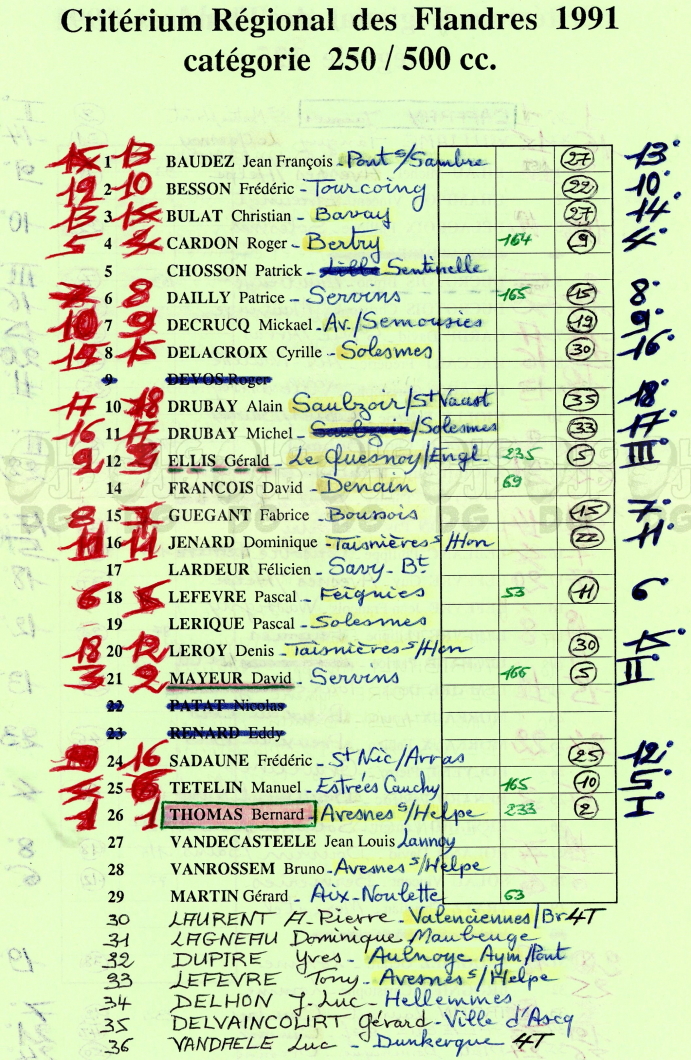 Critérium Régional des Flandres 1991
catégorie 250 / 500 cc.
15 1 13 BAUDEZ Jean François - Pont s/Sambre 27 13°
12 2 10 BESSON Frédéric - Tourcoing 22 10°
13 3 15 BULAT Christian - Bavay 27 14°
5 4 4 CARDON Roger - Bertry 164 9 4°
5 CHOSSON Patrick - Lille Sentinelle
7 6 8 DAILLY Patrice - Servins 165 15 8°
10 7 9 DECRUCQ Mickael - Av./Semousies 19 9°
8 15 DELACROIX Cyrille - Solesmes 30 16°
9 DEVOS Roger
17 10 18 DRUBAY Alain Saulzoir/St Vaast 35 18°
16 11 17 DRUBAY Michel - Saulzoir/Solesmes 33 17°
2 12 3 ELLIS Gérald - Le Quesnoy/Engl. 235 5 III
14 FRANCOIS David - Denain 69
8 15 7 GUEGANT Fabrice - Boussois 15 7°
11 16 11 JENARD Dominique - Taisnières s/Hon 22 11°
17 LARDEUR Félicien - Savy-Bt
6 18 5 LEFEVRE Pascal - Feignies 53 11 6°
19 LERIQUE Pascal - Solesmes
18 20 12 LEROY Denis - Taisnières s/Hon 30 15°
3 21 2 MAYEUR David - Servins 166 5 II
22 PATAT Nicolas
23 RENARD Eddy
24 16 SADAUNE Frédéric - St Nic/Arras 25 12°
4 25 6 TETELIN Manuel - Estrées Cauchy 165 10 5°
1 26 1 THOMAS Bernard - Avesnes s/Helpe 233 2 I
27 VANDECASTEELE Jean Louis Lannoy
28 VANROSSEM Bruno - Avesnes s/Helpe
29 MARTIN Gérard - Aix-Noulette 63
30 LAURENT A-Pierre - Valenciennes/Br 4T
31 LAGNEAU Dominique Maubeuge
32 DUPIRE Yves - Aulnoye Aym/Pont
33 LEFEVRE Tony - Avesnes s/Helpe
34 DELHON J-Luc - Hellemmes
35 DELVAINCOURT Gérard - Ville d'Ascq
36 VANDAELE Luc - Dunkerque 4T